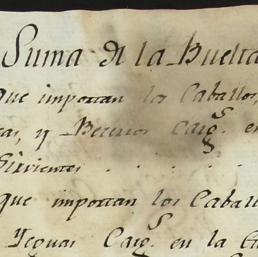 Suma de la Buelta
Que importan los Caballos,
cas, y Becerros Carg.s en
Sirvientes . . . .
que importan los Cabal
Yeguas Carg.s en la